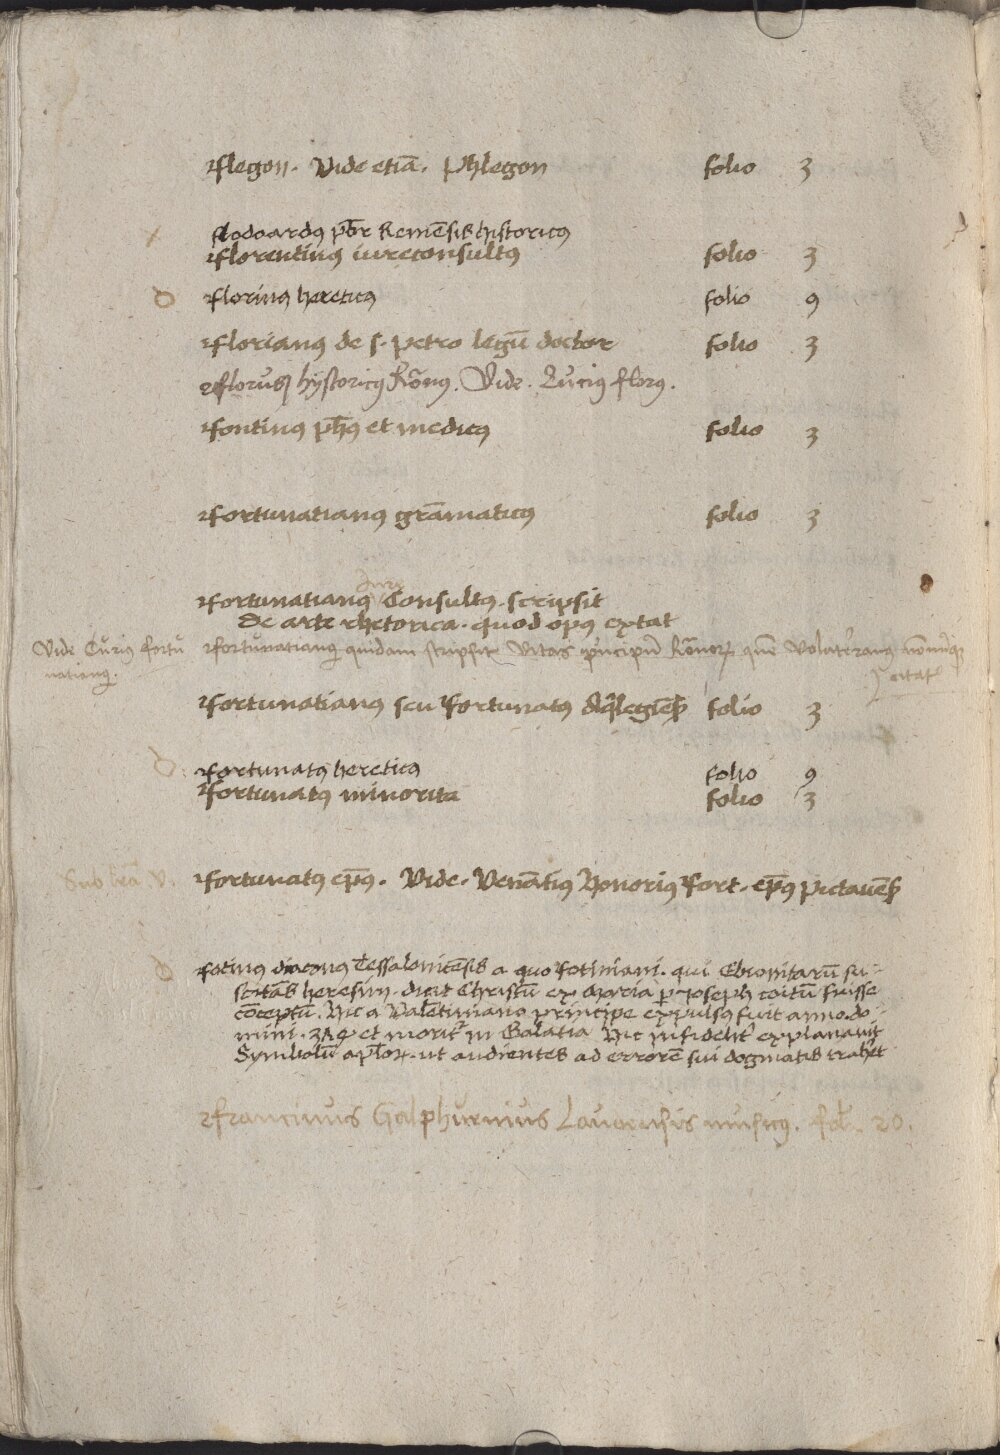 Flegon. Vide etiā. Phlegon folio 3
Flodoardꝰ pbr̄ Remēsis historicus
Florentinꝰ iureconsultꝰ folio 3
Florinꝰ hereticꝰ folio 9
Florianꝰ de s. petro legū doctor folio 3
Florus hystoricꝰ Rōanꝰ. Vide. Lucius florꝰ.
Fontinꝰ ph̄ꝰ et medicꝰ folio 3
Fortunatianꝰ grāmaticꝰ folio 3
Jure
Fortunatianꝰ Consultꝰ. scripsit
de arte rhetorica. quod opꝰ extat
Vide Curiꝰ fortu
natianꝰ.
Fortunatianꝰ quidam scripsit Vitas principū Rōanorꝝ quē Volaterranꝰ nōnūqꝫ
citat
Fortunatianus seu Fortunatꝰ Aqlegiēs̄ folio 3
Fortunatꝰ hereticꝰ folio 9
Fortunatꝰ minorita folio 3
Sub lrā. V.
Fortunatꝰ ep̄ꝰ. Vide. Venātius Honoriꝰ Fort. ep̄ꝰ pictauēs̄
Fotinꝰ diaconꝰ Tessalonicēsis a quo Fotiniani. qui Ebionitarū su
scitās heresim. dicit Christū ex Maria ꝑ Joseph coitū fuisse
cōceptū. Hic a Valētiniano principe expulsꝰ fuit anno. do
mini. 374 et morit̄ in Galatia Hic infidelit̄ explanauit
Symbolū apl̄orꝝ. ut audientes ad errorē sui dogmatis trahēt
Francinus Galphurnius Laudensis musicꝰ. fol. 20.